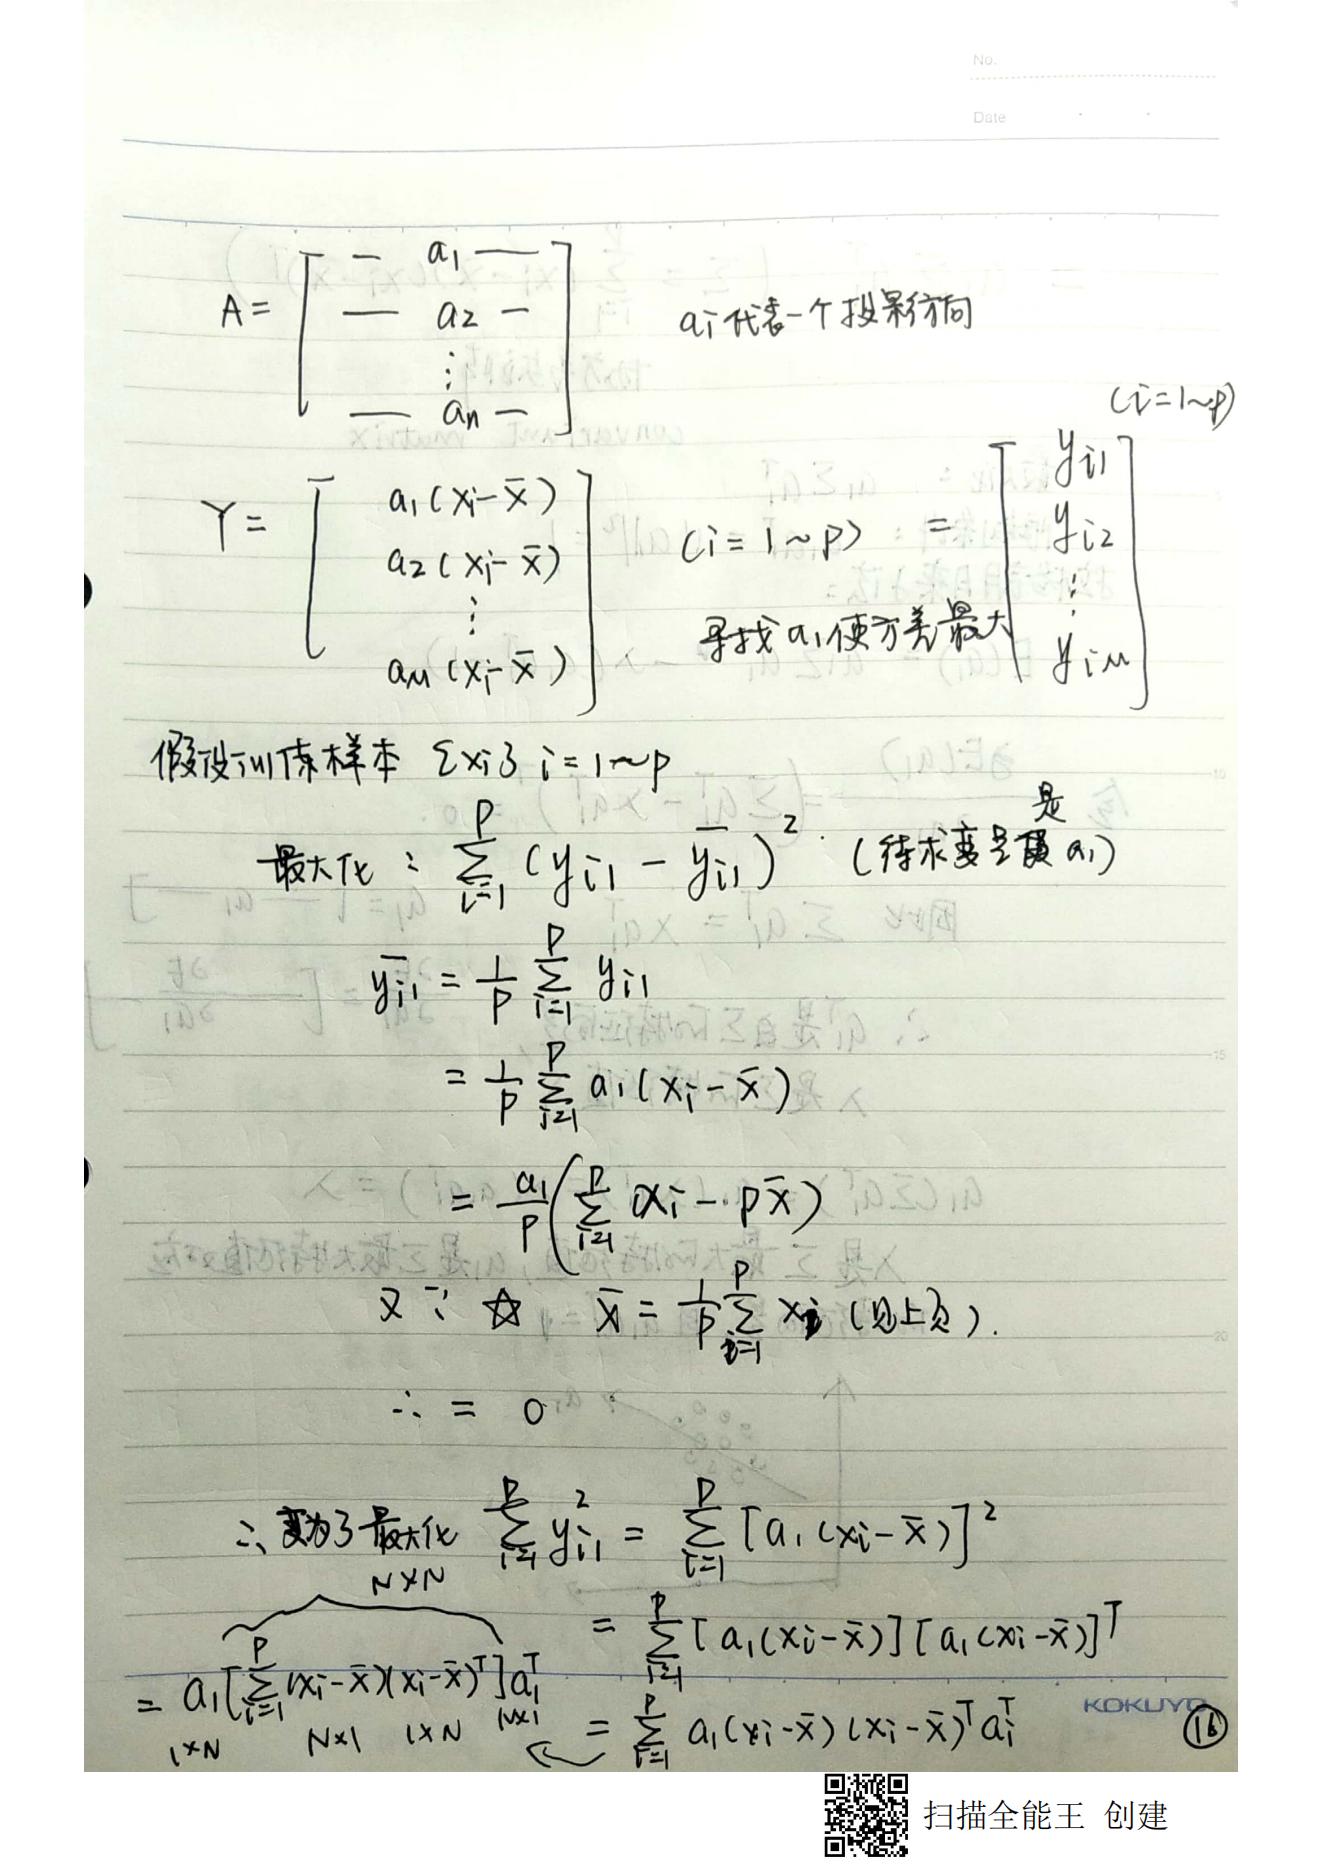 No.
Date
A = [ — a₁ — ; — a₂ — ; ⋮ ; — aₙ — ]  aᵢ代表一个投影方向
(i=1~p)
Y = [ a₁(xᵢ-x̄) ; a₂(xᵢ-x̄) ; ⋮ ; a_M(xᵢ-x̄) ] (i=1~p) = [ yᵢ₁ ; yᵢ₂ ; ⋮ ; y_iM ]
寻找a₁使方差最大
假设训练样本 {xᵢ} i=1~p
最大化: Σ_{i=1}^{P} (yᵢ₁ - ȳᵢ₁)². (待求变量是a₁)
ȳᵢ₁ = 1/P Σ_{i=1}^{P} yᵢ₁
= 1/P Σ_{i=1}^{P} a₁(xᵢ-x̄)
= a₁/P (Σ_{i=1}^{P} xᵢ - Px̄)
又∵ ☆ x̄ = 1/P Σ_{i=1}^{P} xᵢ (见上页).
∴ = 0
∴变为了最大化 Σ_{i=1}^{P} yᵢ₁² = Σ_{i=1}^{P} [a₁(xᵢ-x̄)]²
= Σ_{i=1}^{P} [a₁(xᵢ-x̄)][a₁(xᵢ-x̄)]ᵀ
= Σ_{i=1}^{P} a₁(xᵢ-x̄)(xᵢ-x̄)ᵀaᵢᵀ
N×N
= a₁[Σ_{i=1}^{P} (xᵢ-x̄)(xᵢ-x̄)ᵀ]a₁ᵀ
1×N N×1 1×N N×1
KOKUYO
⑯
扫描全能王 创建